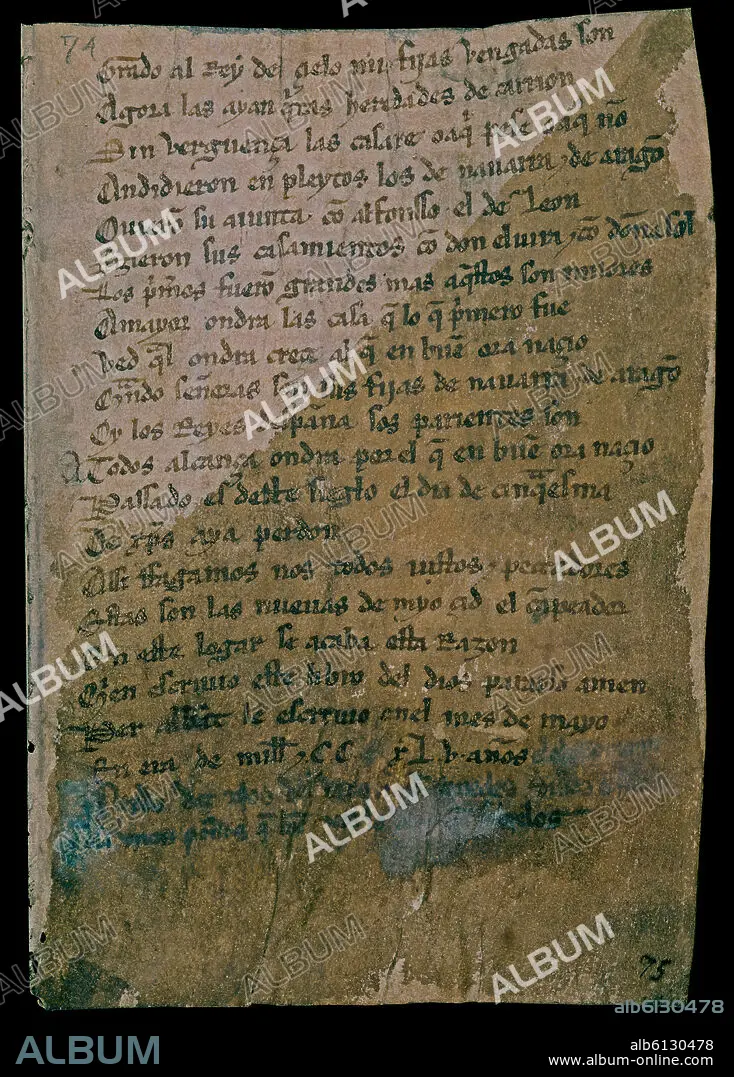 74
Grado al Rey del çielo mis fijas vengadas son
Agora las ayan q̃tas heredades de carrion
Sin verguença las casare o aq̃ pese o aq̃ nõ
Andidieron en pleytos los de nauarra ⁊ de aragõ
Ouierõ su aiunta cõ alfonsso el de Leon
fizieron sus casamientos cõ don eluira ⁊ cõ doña sol
Los p̃meros fuerõ grandes mas aq̃stos son miiores
A mayor ondra las casa q̃ lo q̃ p̃mero fue
Ved q̃l ondra creçe al q̃ en buẽ ora naçio
Q̃ndo señoras son sus fijas de nauarra ⁊ de aragõ
Oy los Reyes despaña sos parientes son
A Todos alcança ondra por el q̃ en buẽ ora naçio
Passado es deste sieglo el dia de cinq̃esma
De xp̃s aya perdon
Assi ffagamos nos todos iustos ⁊ peccadores
Estas son las nueuas de myo çid el cãpeador
En este logar se acaba esta Razon
Q̃en escriuio este libro del dios parayso amen
Per abbat le escriuio en el mes de mayo
En era de mill ⁊ CC xL v años
75
ALBUM
alb6130478
ALBUM
alb6130478
www.album-online.com